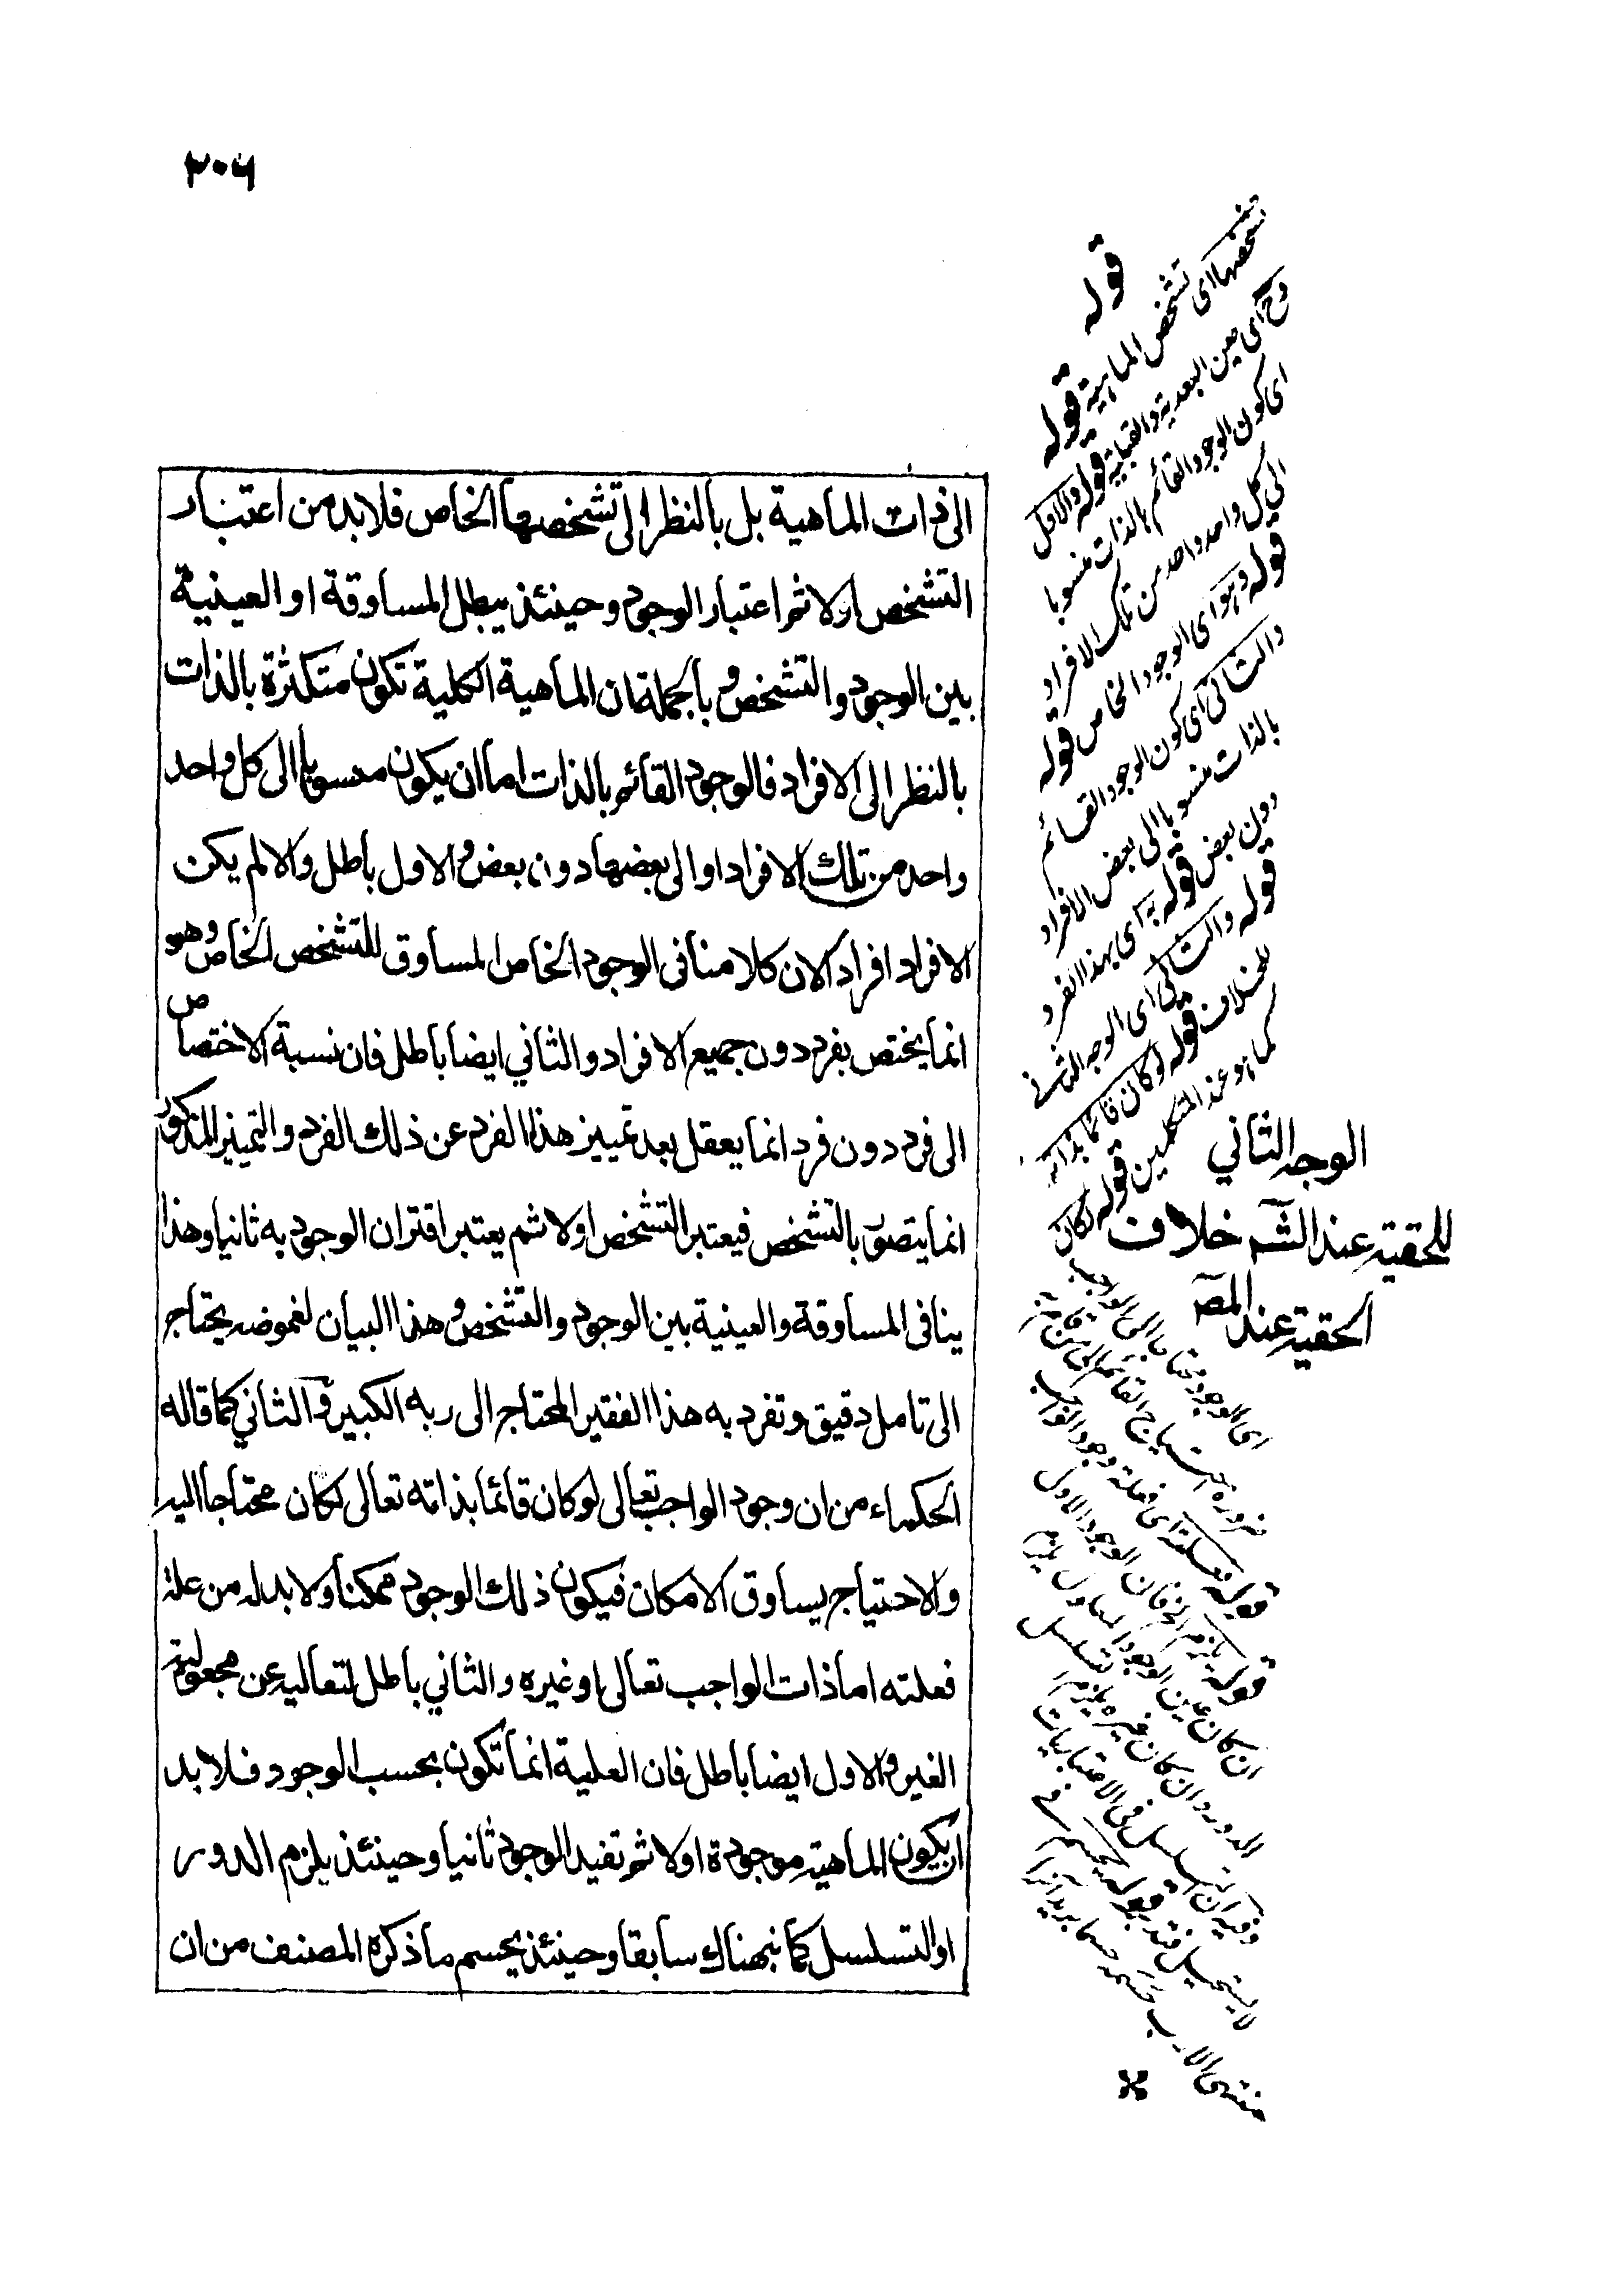 ٢٠٦
الى ذات الماهية بل بالنظر الى تشخصها الخاص فلابد من اعتبار
التشخص اولا ثم اعتبار الوجود وحينئذ يبطل المساوقة او العينية
بين الوجود والتشخص وبالجملة ان الماهية الكلية تكون متكثرة بالذات
بالنظر الى الافراد فالوجود القائم بالذات اما ان يكون منسوبا الى كل واحد
واحد من تلك الافراد او الى بعضها دون بعض والاول باطل والا لم يكن
الافراد افراد الان كلا منافى الوجود الخاص المساوق للتشخص الخاص وهو
انما يختص بفرد دون جميع الافراد والثاني ايضا باطل فان نسبة الاختصاص
الى فرد دون فرد انما يعقل بعد تمييز هذا الفرد عن ذلك الفرد والتمييز المذكور
انما يتصور بالتشخص فيعتبر التشخص اولا ثم يعتبر اقتران الوجود به ثانيا وهذا
ينافى المساوقة والعينية بين الوجود والتشخص وهذا البيان لغموضه يحتاج
الى تامل دقيق وتفرد به هذا الفقير المحتاج الى ربه الكبير والثاني كما قاله
الحكماء من ان وجود الواجب تعالى لو كان قائما بذاته تعالى لكان محتاجا اليه
والاحتياج يساوق الامكان فيكون ذلك الوجود ممكنا ولا بد له من علة
فعلته اما ذات الواجب تعالى او غيره والثاني باطل لتعاليه عن مجعولية
الغير والاول ايضا باطل فان العلية انما تكون بحسب الوجود فلا بد
ان يكون الماهية موجودة اولا ثم تفيد الوجود ثانيا وحينئذ يلزم الدور
او التسلسل كما نبهناك سابقا وحينئذ يحسم ما ذكره المصنف من ان
قوله
تشخصها اى تشخص الماهية قوله
وح اى حين البعدية والقبلية قوله والا فكل
اى كون الوجود القائم بالذات منسوبا
الى كل واحد واحد من تلك الافراد
قوله وهو اى الوجود الخاص قوله
والثانى اى كون الوجود القائم
بالذات منسوبا الى بعض الافراد
دون بعض قوله به اى بهذا الفرد
قوله والثانى اى الوجه الثانى
للخلاف قوله لو كان قائما بذاته
كما هو عند المتكلمين قوله لكان
اى الوجود محتاجا الى الواجب
ضرورة احتياج القائم الى من قام به
قوله فعلته اى فعلة وجود الواجب
قوله يلزم الخ فان الوجود الاول
ان كان عين الوجود الثانى يلزم
الدور وان كان غيره يلزم التسلسل
وفيه ان التسلسل فى الاعتباريات
لا يستحيل فتدبر قوله يحسم فى
منتهى الارب
الوجه الثاني
للحقية عند الشم خلاف
الحقية عند المص